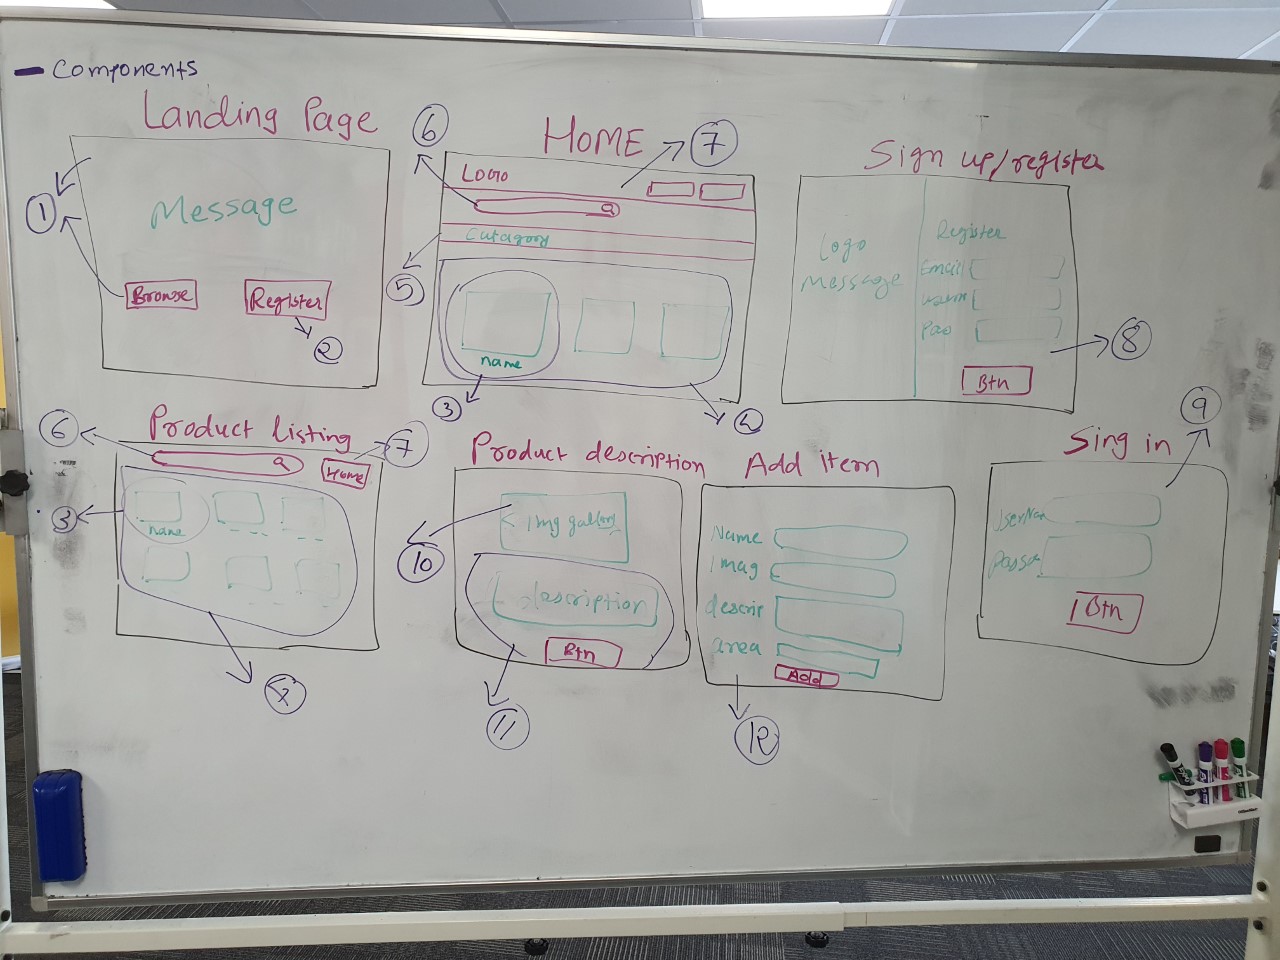 - Components
Landing Page
Message
Browse
Register
1
2
HOME
6
7
Logo
Catagory
5
name
3
4
Sign up/register
Logo
Message
Register
Email
Btn
8
Product listing
6
7
Home
name
3
Product description
< img gallery
description
Btn
10
11
Add item
Name
imag
descrip
area
Add
12
Sing in
9
Btn